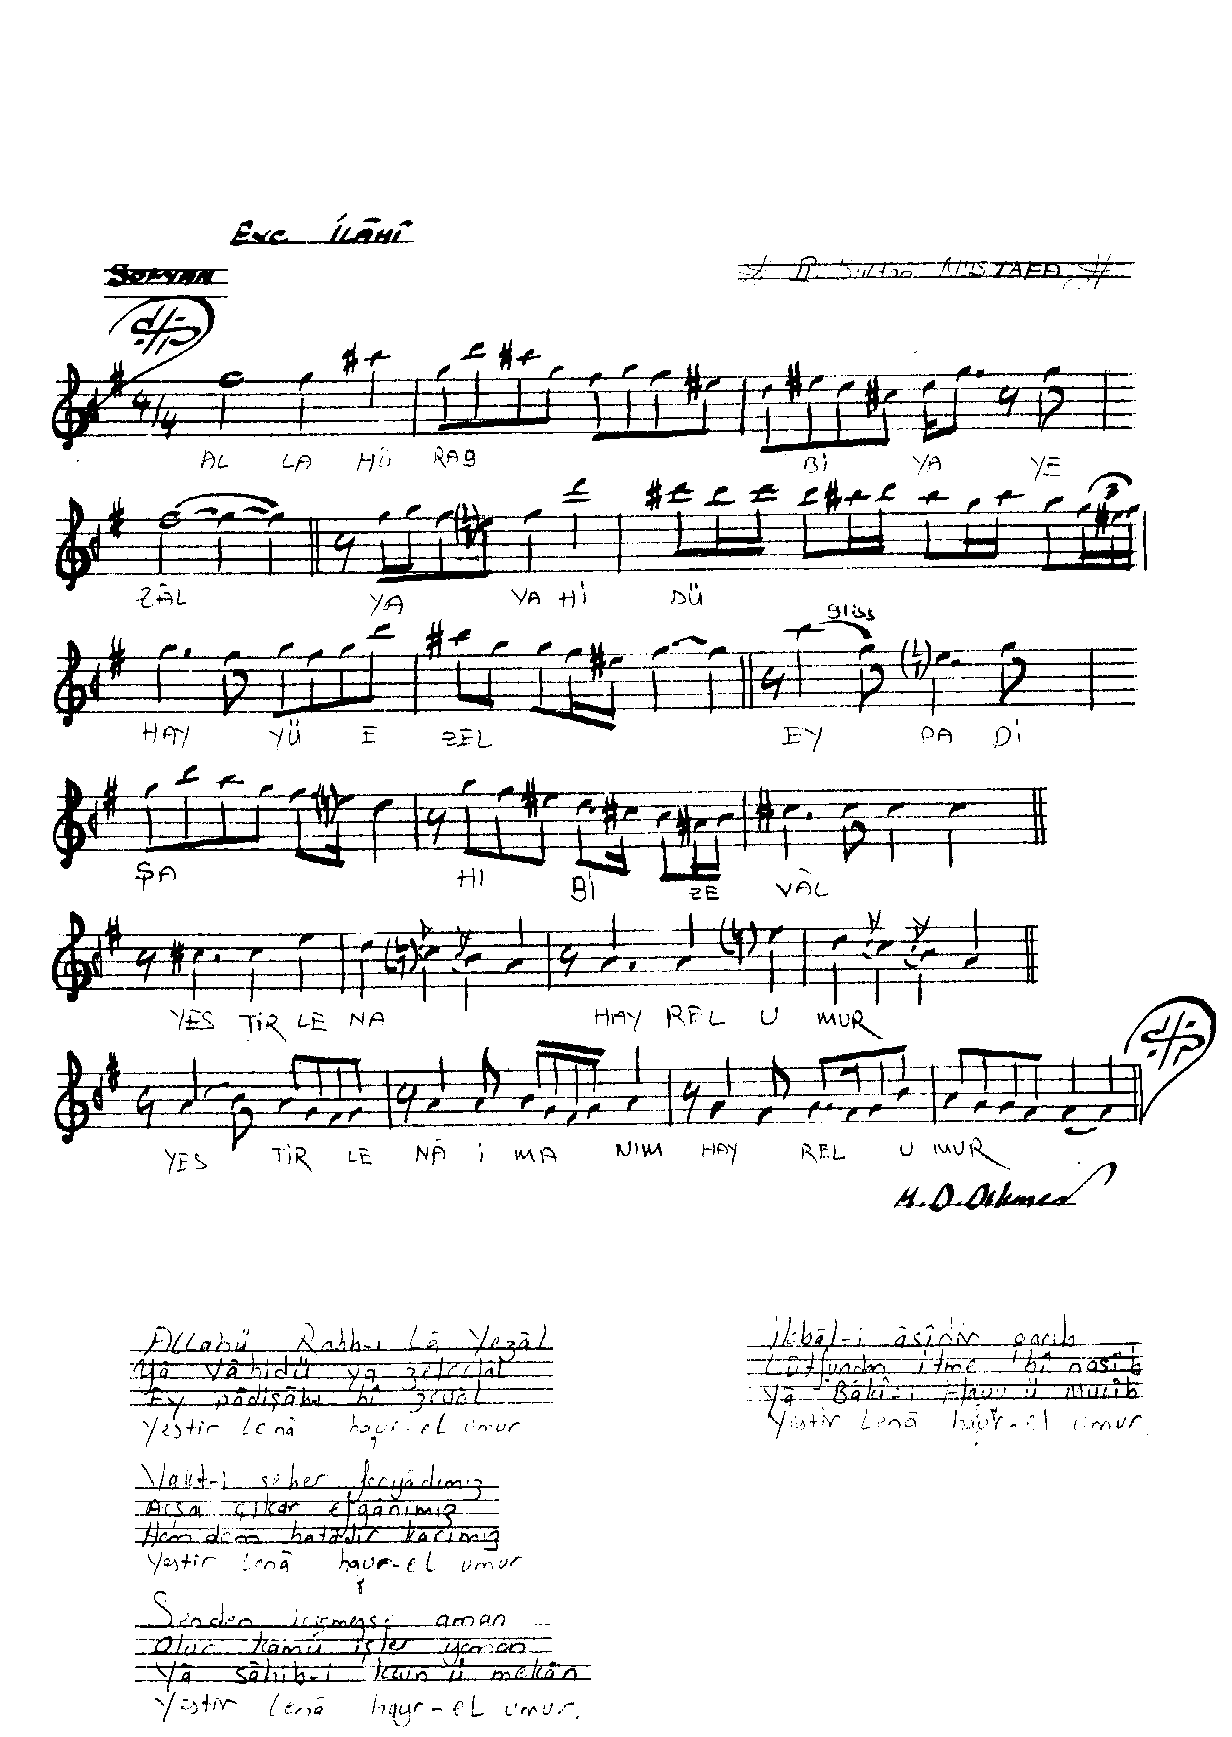 Evc İLÂHÎ
SOFYAN
Sultan MUSTAFA
4/4
AL LA HÜ RAB BÎ YA YE
ZÂL YA VA HÎ DÜ
gliss
HAY YÜ E ZEL EY PA DÎ
ŞA HI BÎ ZE VÂL
YES TİR LE NA HAY REL U MUR
YES TİR LE NÂ İ MA NIM HAY REL U MUR
Allahü Rabb-ı Lâ Yezâl
Yâ Vâhidü ya
Ey pâdişâhı bî zevâl
Yestir Lenâ hayr-el umur
Vakt-i seher feryâdımız
Açsa çıkar efgânımız
Hem dem hatadır kârımız
Yestir Lenâ hayr-el umur
Senden aman
Olur kamû işler yaman
Yâ sâhib-i kevn ü mekân
Yestir Lenâ hayr-el umur.
âsîdir garib
Lûtfundan itme bî nasîb
Yâ Bâkî-i ü Mucîb
Yestir Lenâ hayr-el umur.